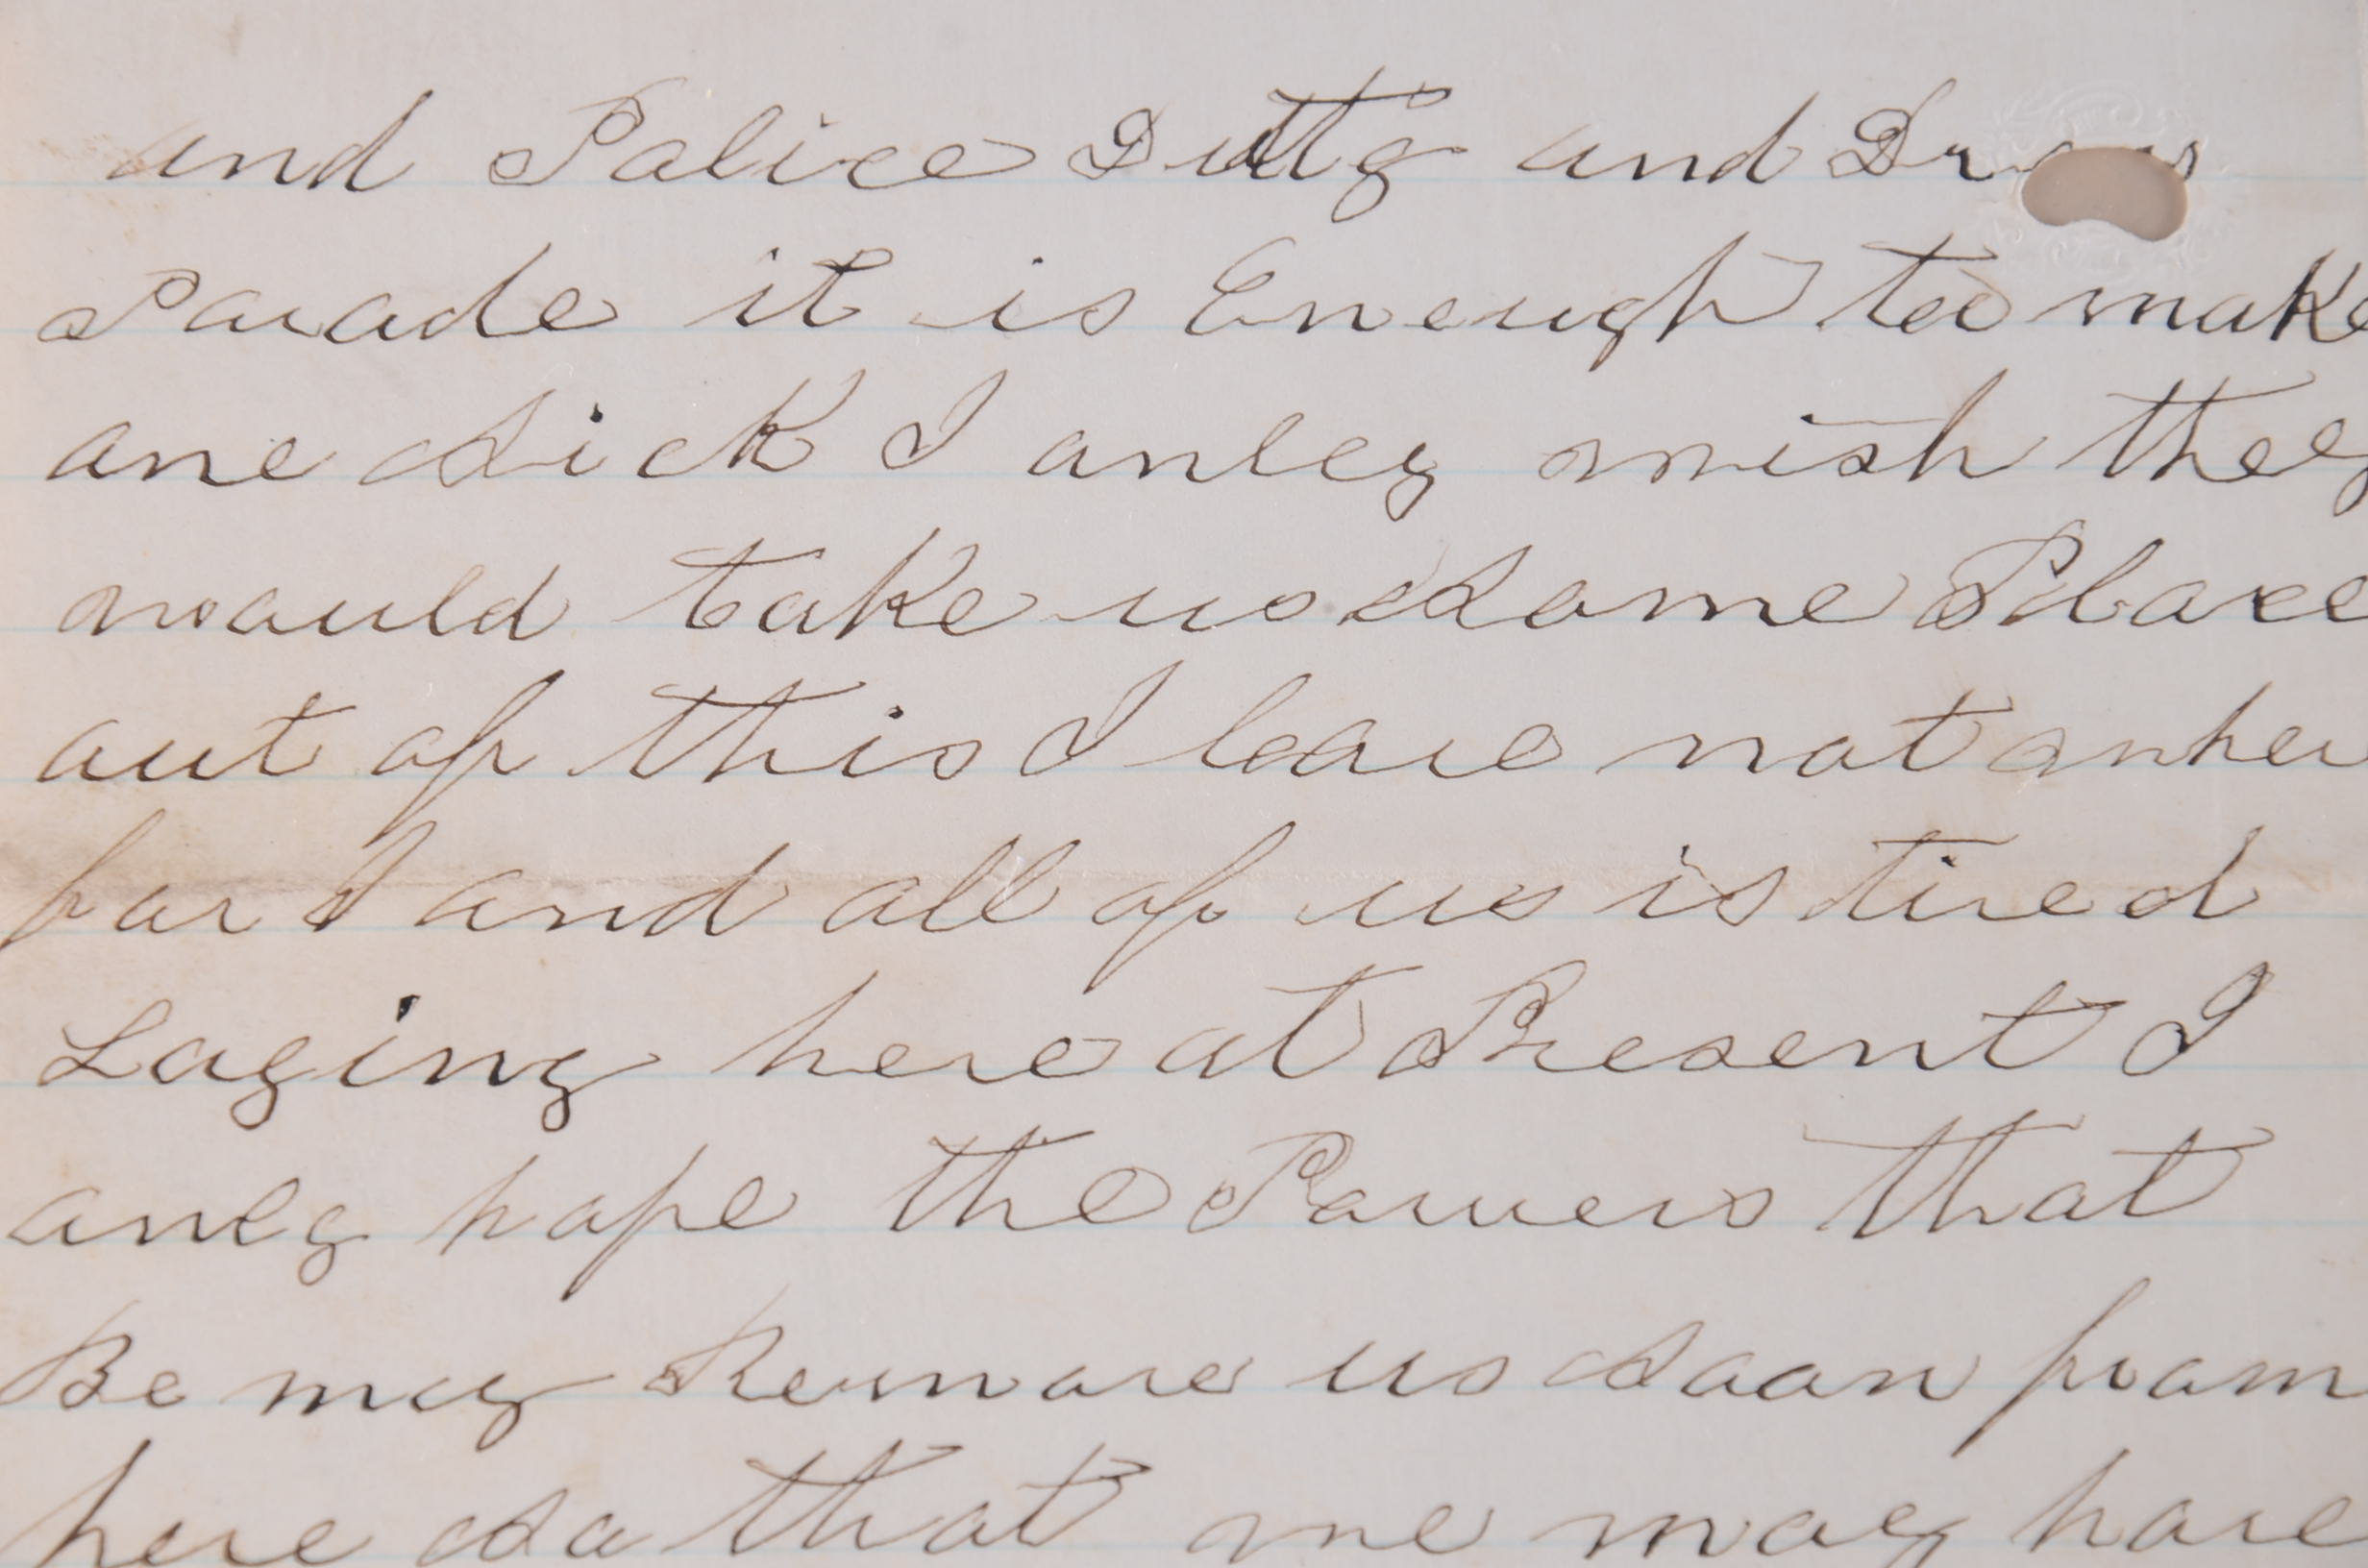 and Police Dutty and Dress
Parade it is Enough to make
one sick I onley wish they
would take us some Place
out of this I care not wher
for I and all of us is tired
Laying here at Present I
only hope the Powers that
Be may Remove us soon from
here so that we may have